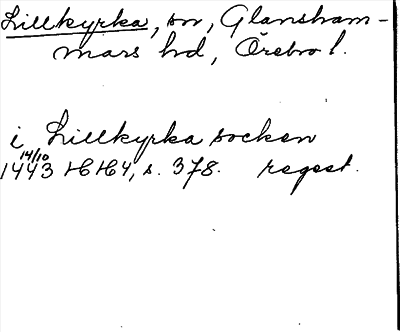 Lillkyrka, sn, Glansham-
mars hd, Örebro l.
i Lillkyrka socken
14/10
1443 HH4, s. 378. regest.